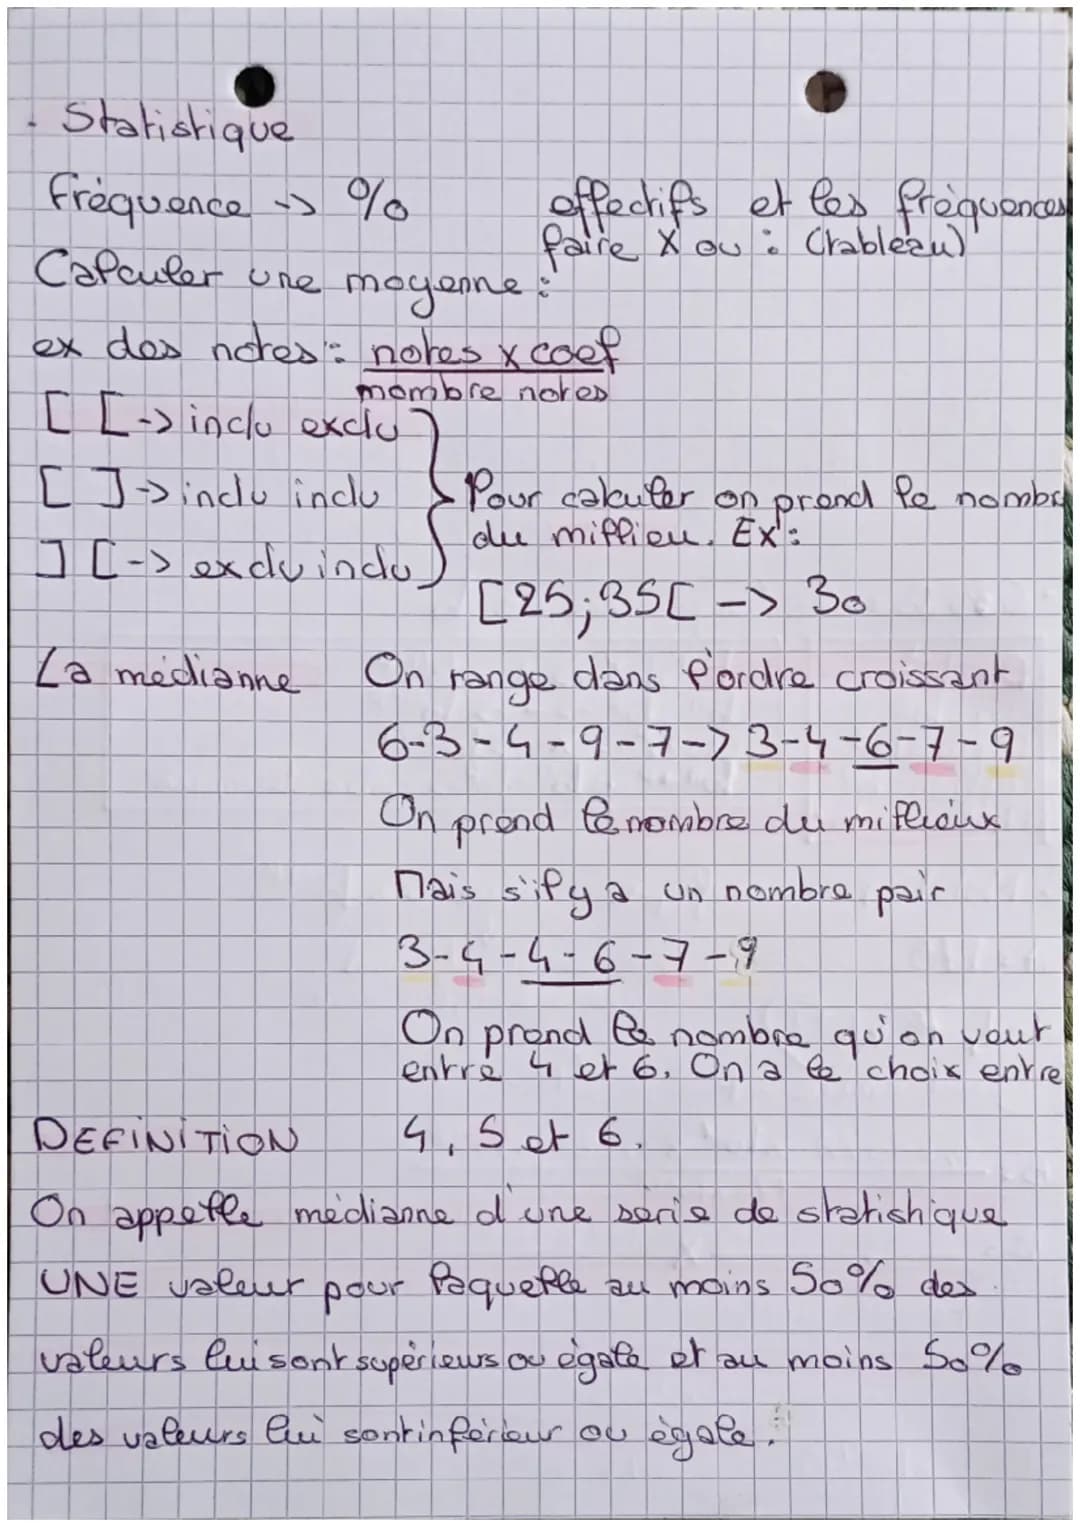 . Statistique
Fréquence -> %
effectifs et les fréquences
faire X ou : (tableau)
Calculer une moyenne :
ex des notes : notes x coef
nombre notes
[ [ -> inclu exclu
[ ] -> inclu inclu
] [ -> exclu inclu
Pour calculer on prend le nombre
du millieu. Ex :
[25;35[ -> 30
La médianne
On range dans l'ordre croissant
6-3-4-9-7-> 3-4-6-7-9
On prend le nombre du millieux
Mais s'il y a un nombre pair
3-4-4-6-7-9
On prend le nombre qu'on veut
entre 4 et 6. On a le choix entre
4, 5 et 6.
DEFINITION
On appelle médianne d'une série de statistique
UNE valeur pour laquelle au moins 50% des
valeurs lui sont supérieurs ou égale et au moins 50%
des valeurs lui sont inférieur ou égale.